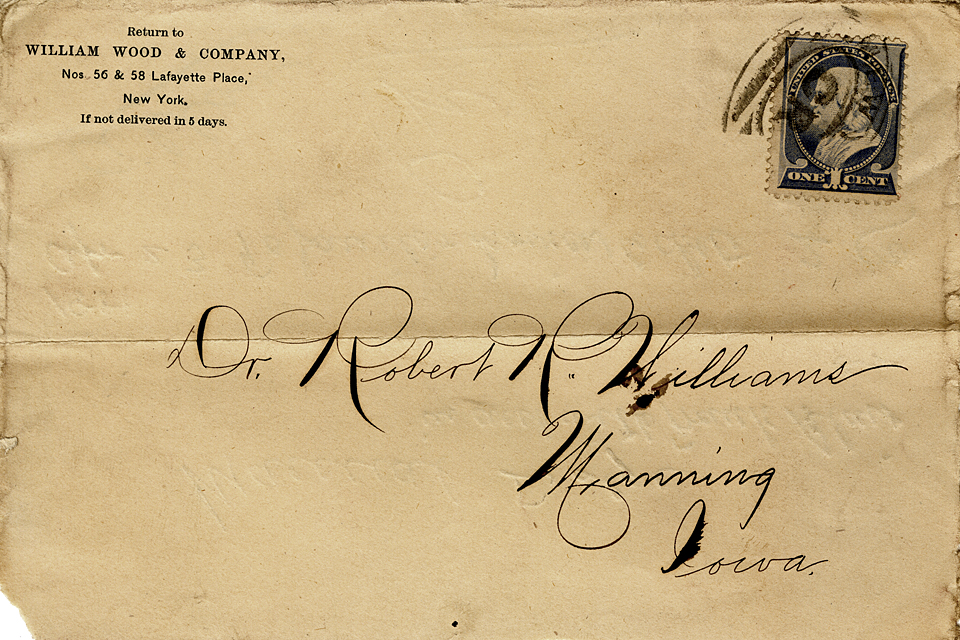 Return to
WILLIAM WOOD & COMPANY,
Nos. 56 & 58 Lafayette Place,
New York.
If not delivered in 5 days.
UNITED STATES POSTAGE
ONE 1 CENT
Dr. Robert R. Williams
Manning
Iowa.